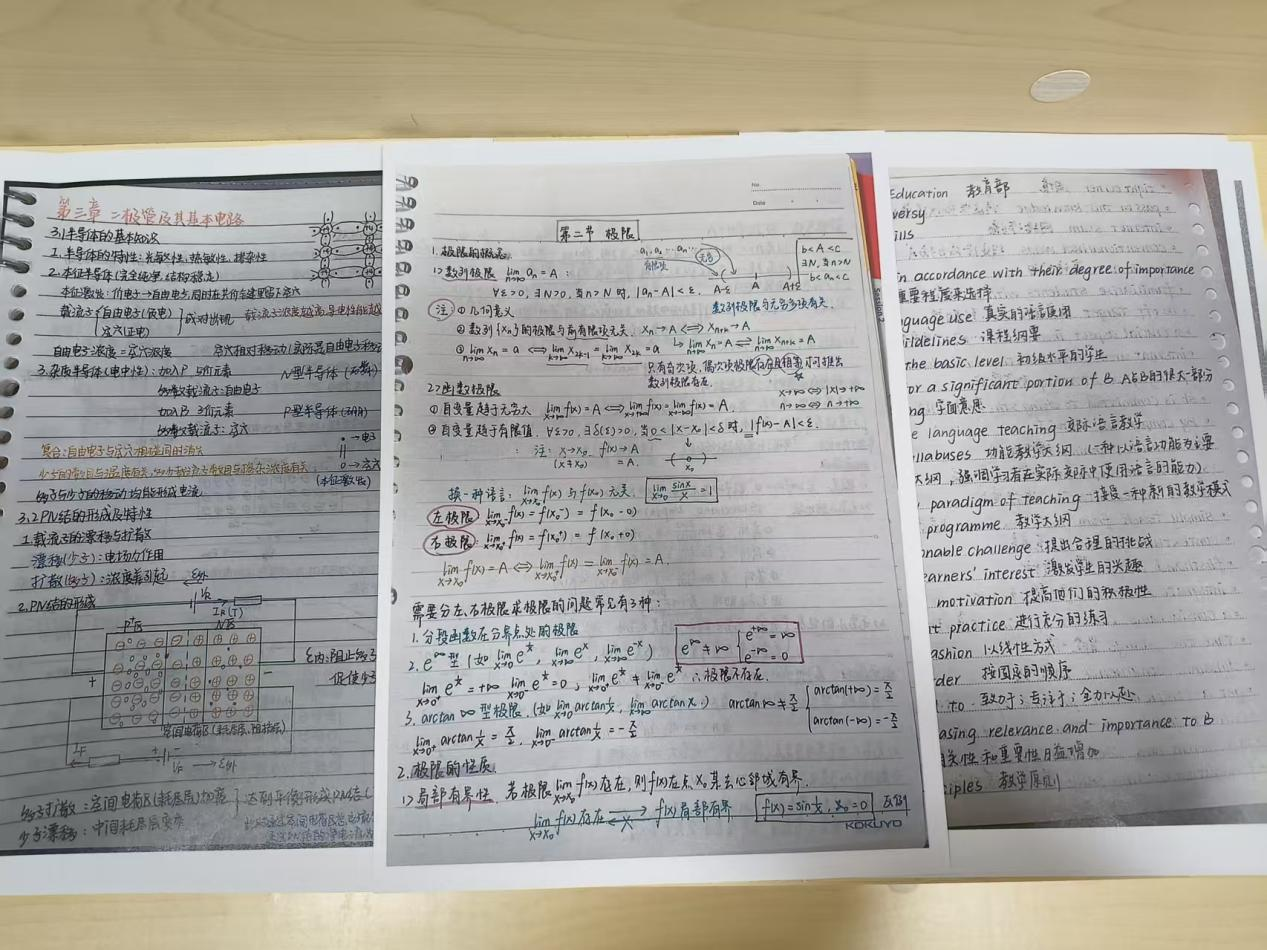 第三章 二极管及其基本电路
3.1 半导体的基本知识
1. 半导体的特性：光敏性、热敏性、掺杂性
2. 本征半导体(完全纯净、结构稳定)
本征激发：价电子→自由电子，同时在共价键里留下空穴
载流子 自由电子(负电) 空穴(正电) 成对出现 载流子浓度越高，导电性能越
自由电子浓度=空穴浓度 空穴相对移动(实际是自由电子移动
3. 杂质半导体(电中性)：加入P 5价元素 N型半导体
多数载流子：自由电子
加入B 3价元素 P型半导体
多数载流子：空穴
复合：自由电子与空穴相碰同时消失
•→电子
○→空穴
(本征激发)
多子与少子的移动均能形成电流
3.2 PN结的形成及特性
1. 载流子的漂移与扩散
漂移(少子)：电场力作用
扩散(多子)：浓度差引起
2. PN结的形成
ε外
P区 N区
+ −
ε内：阻止多子
促使少子
空间电荷区(耗尽层、阻挡层)
IF VF →ε外
多子扩散：空间电荷区(耗尽层)加宽
少子漂移：中间耗尽层变窄
达到平衡形成PN结
No.
Date
第二节 极限
1. 极限的概念
a₁, a₂ … aₙ …
有限项
无穷
1> 数列极限 lim(n→∞) aₙ = A：
A-ε A A+ε
b<A<c
∃N, 当n>N
b<aₙ<c
∀ε>0, ∃N>0, 当n>N时, |aₙ-A|<ε.
注 ① 几何意义 数列极限与无穷多项有关.
② 数列{xₙ}的极限与前有限项无关. xₙ→A ⟺ xₙ₊ₖ→A
↳ lim(n→∞) xₙ=A ⟺ lim(n→∞) xₙ₊ₖ=A
③ lim(n→∞) xₙ=a ⟺ lim(k→∞) x₂ₖ₋₁ = lim(k→∞) x₂ₖ = a
只有奇次项、偶次项极限存在且相等才可推出
数列极限存在.
2> 函数极限
x→∞ ⟺ |x|→+∞
n→∞ ⟺ n→+∞
① 自变量趋于无穷大 lim(x→∞) f(x)=A ⟺ lim(x→+∞) f(x)=lim(x→-∞) f(x)=A.
② 自变量趋于有限值. ∀ε>0, ∃δ(ε)>0, 当0<|x-x₀|<δ时, |f(x)-A|<ε.
注: x→x₀ f(x)→A
(x≠x₀) =A.
x₀
换一种语言: lim(x→x₀) f(x) 与 f(x₀) 无关. lim(x→0) sinx/x = 1
左极限 lim(x→x₀⁻) f(x) = f(x₀⁻) = f(x₀-0)
右极限: lim(x→x₀⁺) f(x) = f(x₀⁺) = f(x₀+0)
lim(x→x₀) f(x)=A ⟺ lim(x→x₀⁻) f(x) = lim(x→x₀⁺) f(x)=A.
需要分左、右极限求极限的问题常见有3种：
1. 分段函数在分界点处的极限
e^∞≠∞ e^(+∞)=∞ e^(-∞)=0
2. e^∞型 (如 lim(x→0) e^(1/x), lim(x→∞) e^x, lim(x→∞) e^(-x))
lim(x→0⁺) e^(1/x)=+∞ lim(x→0⁻) e^(1/x)=0, lim(x→0⁺) e^(1/x)≠lim(x→0⁻) e^(1/x) ∴极限不存在.
3. arctan∞型极限. (如 lim(x→0) arctan 1/x, lim(x→∞) arctan x.) arctan∞≠π/2 arctan(+∞)=π/2 arctan(-∞)=-π/2
lim(x→0⁺) arctan 1/x = π/2, lim(x→0⁻) arctan 1/x = -π/2
2. 极限的性质.
1> 局部有界性. 若极限 lim(x→x₀) f(x) 存在, 则f(x)在点x₀某去心邻域有界.
lim(x→x₀) f(x)存在 ⇄ f(x)局部有界 f(x)=sin 1/x, x₀=0 反例
KOKUYO
Education 教育部
versy
ills
in accordance with their degree of importance
重要程度来选择
nguage use 真实的语言使用
uidelines 课程纲要
the basic level 初级水平的学生
or a significant portion of B A占B的很大部分
ng 字面意思
e language teaching 交际语言教学
llabuses 功能教学大纲 (一种以语言功能为主要
大纲，强调学习者在实际交际中使用语言的能力)
paradigm of teaching 接受一种新的教学模式
programme 教学大纲
nable challenge 提出合理的挑战
earners' interest 激发学生的兴趣
motivation 提高他们的积极性
t practice 进行充分的练习
ashion 以线性方式
der 按固定的顺序
to 致力于；专注于；全力以赴
asing relevance and importance to B
相关性和重要性日益增加
ciples 教学原则